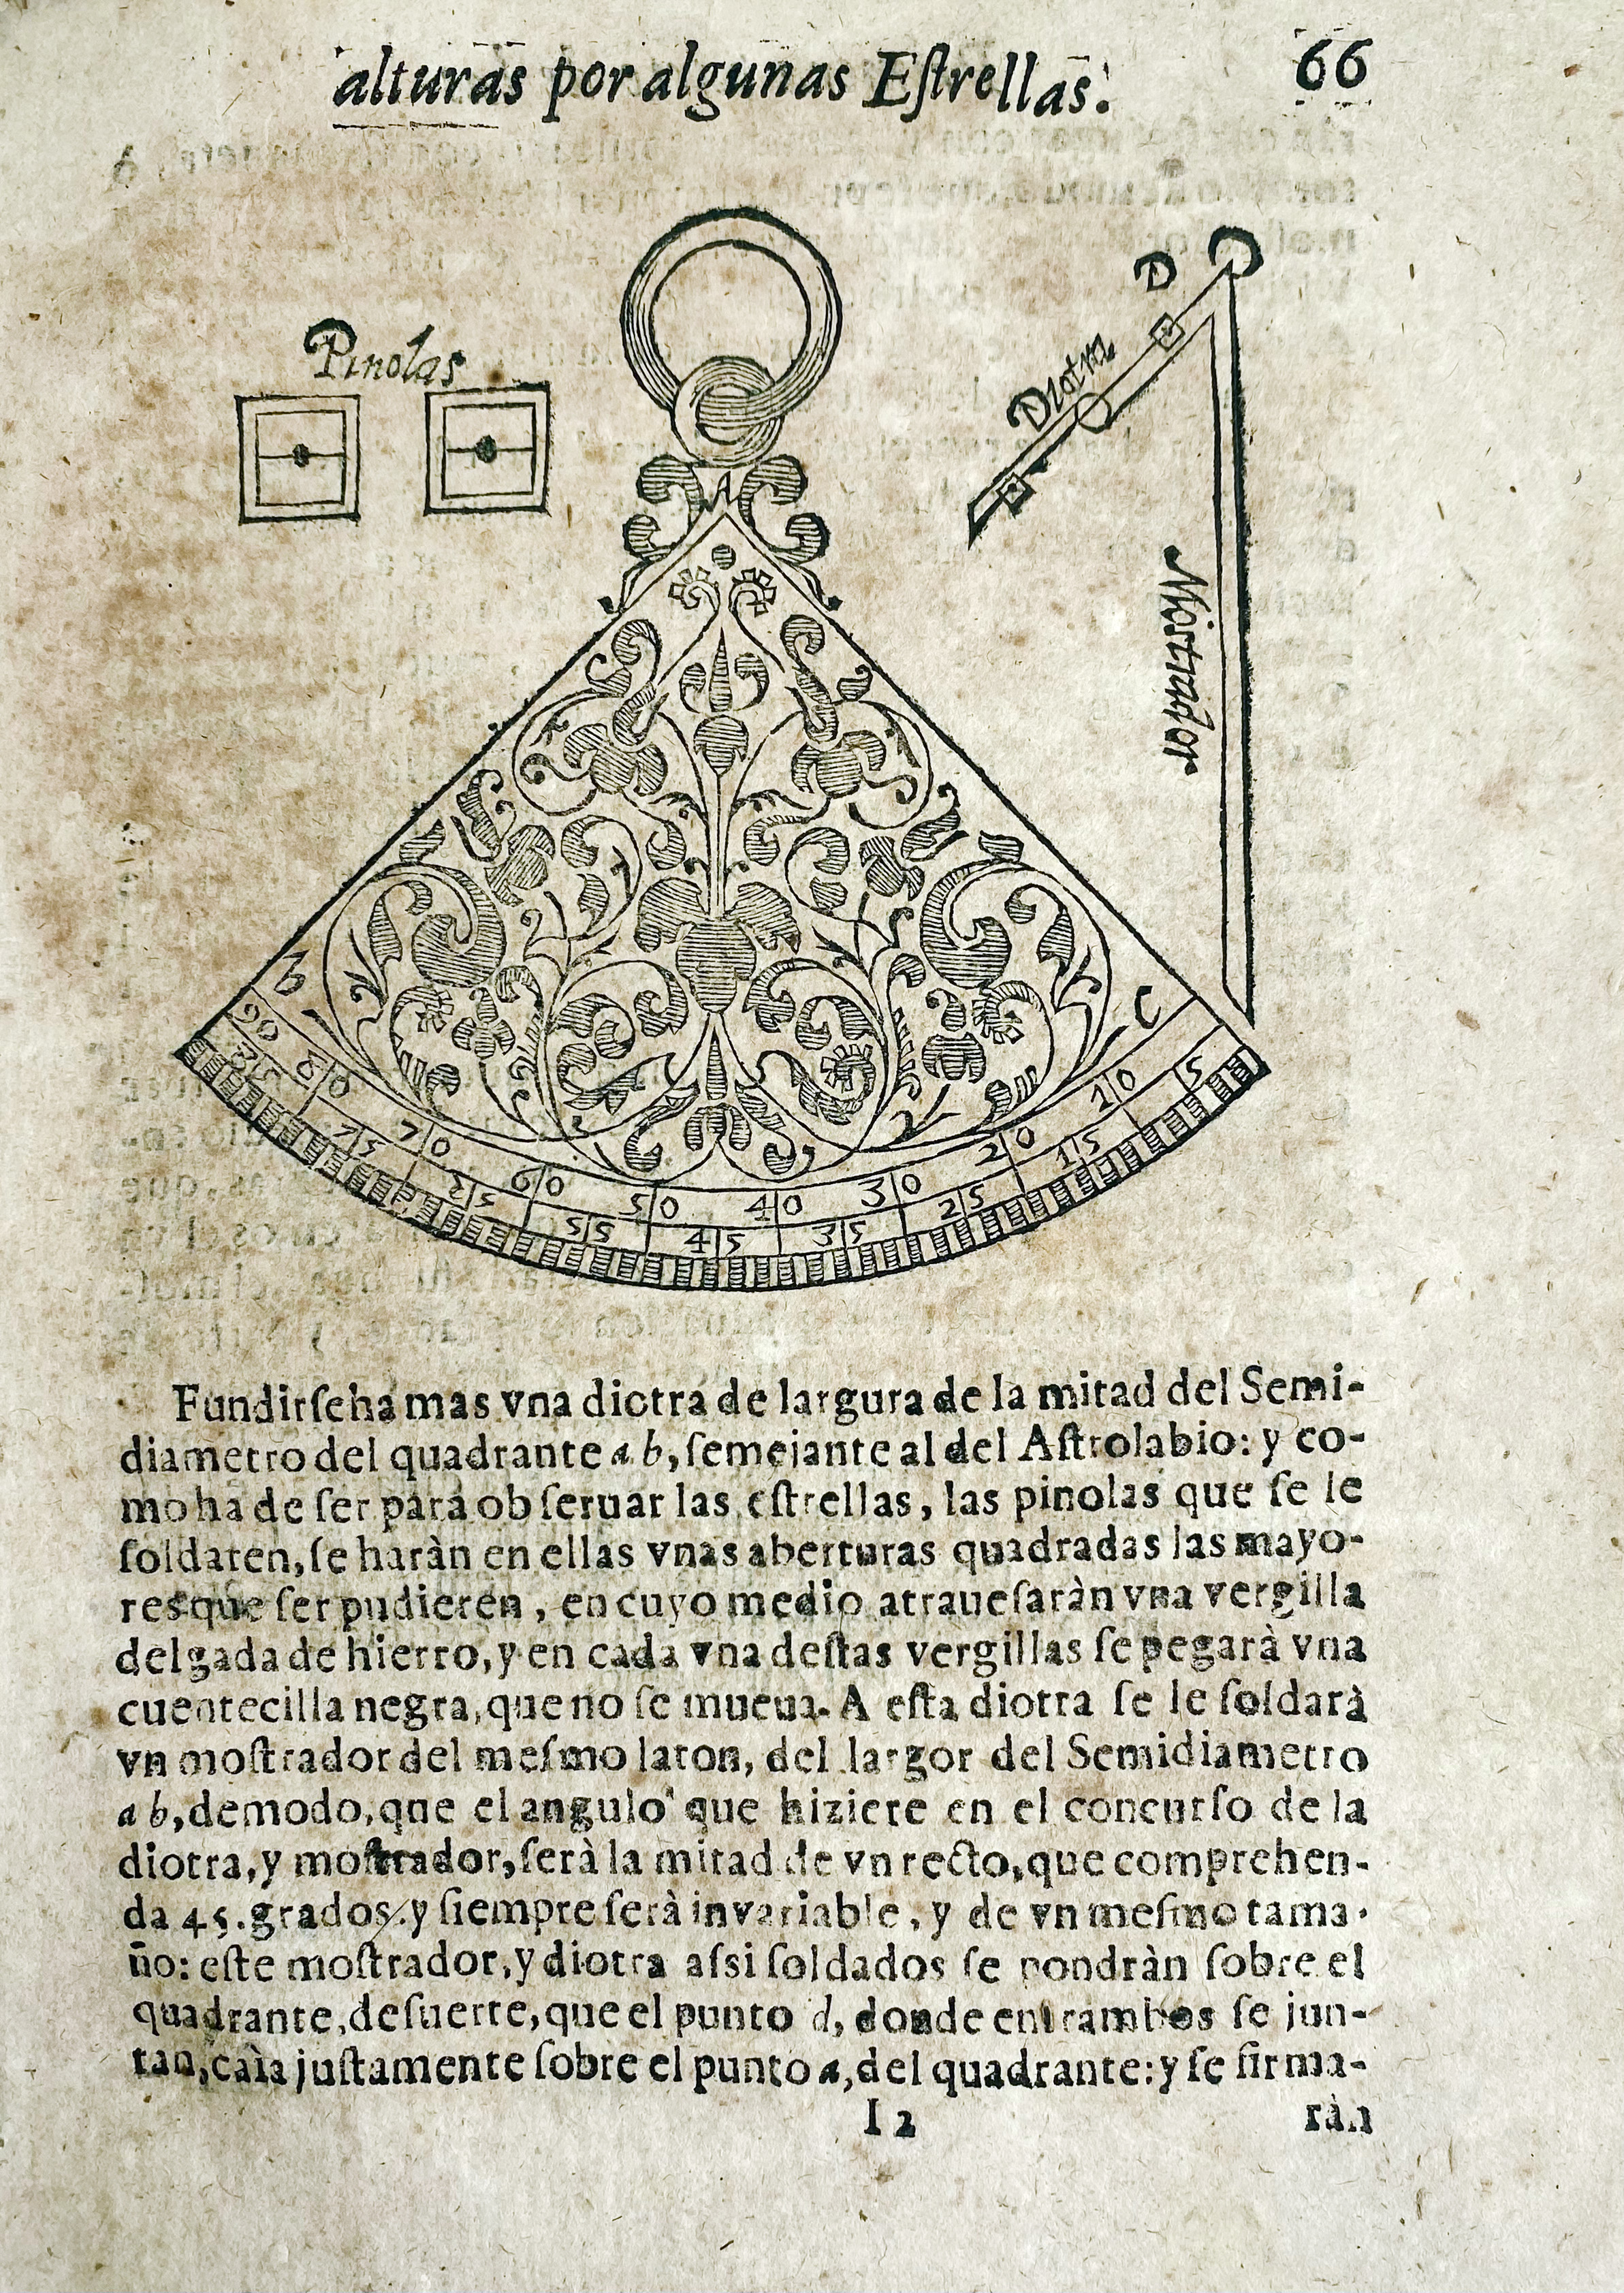 alturas por algunas Eſtrellas.
66
Pinolas
D
Diotra
Moſtrador
A
b
C
90
80
70
60
50
40
30
20
10
75
55
45
35
25
15
5
Fundirſeha mas vna dictra de largura de la mitad del Semi-
diametro del quadrante a b, ſemejante al del Aſtrolabio: y co-
mo ha de ſer para obſeruar las eſtrellas, las pinolas que ſe le
ſoldaren, ſe haràn en ellas vnas aberturas quadradas las mayo-
res que ſer pudieren, en cuyo medio atraueſaràn vna vergilla
delgada de hierro, y en cada vna deſtas vergillas ſe pegarà vna
cuentecilla negra, que no ſe mueua. A eſta diotra ſe le ſoldarà
vn moſtrador del meſmo laton, del largor del Semidiametro
a b, demodo, que el angulo que hiziere en el concurſo de la
diotra, y moſtrador, ſerà la mitad de vn recto, que comprehen-
da 45. grados, y ſiempre ſerà invariable, y de vn meſmo tama-
ño: eſte moſtrador, y diotra aſsi ſoldados ſe pondràn ſobre el
quadrante, deſuerte, que el punto d, donde entrambos ſe jun-
tan, caìa juſtamente ſobre el punto a, del quadrante: y ſe firma-
I 2
ràn